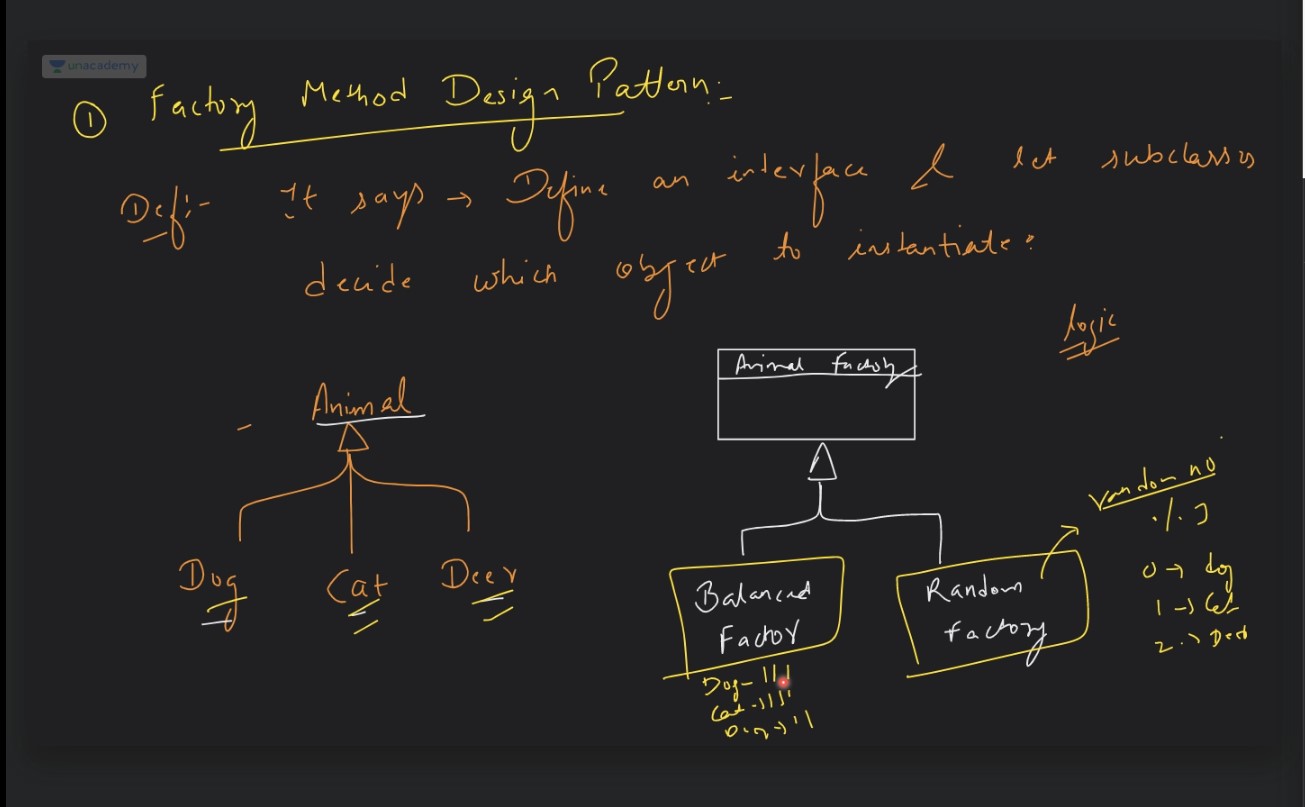 unacademy
① Factory Method Design Pattern:-
Def:- It says → Define an interface & let subclasses
decide which object to instantiate.
logic
Animal
Dog
Cat
Deer
Animal Factory
Balanced
Factory
Dog-
Cat →
Random
factory
random no
% 3
0 → dog
1 → Cat
2 →